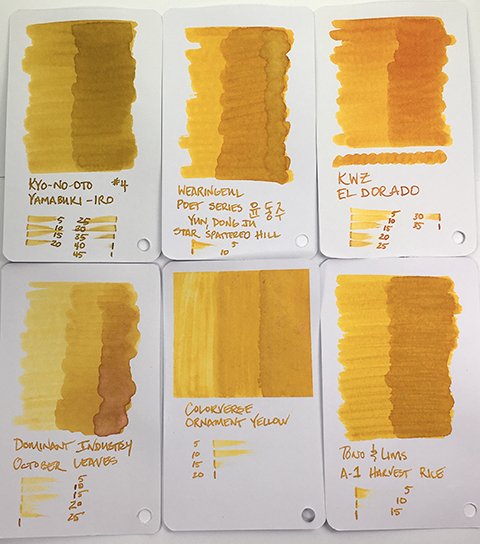 KYO-NO-OTO #4
YAMABUKI-IRO
5 25
10 30
15 35
20 40
1 45 1
WEARINGEUL
POET SERIES 윤동주
YUN DONG JU
STAR SPATTERED HILL
5
1 10
KWZ
EL DORADO
5 30
10 35
15 1
20
25
DOMINANT INDUSTRY
OCTOBER LEAVES
5
10
15
20
1 25
COLORVERSE
ORNAMENT YELLOW
5
10
15
20 1
TONO & LIMS
A-1 HARVEST RICE
5
10
1 15